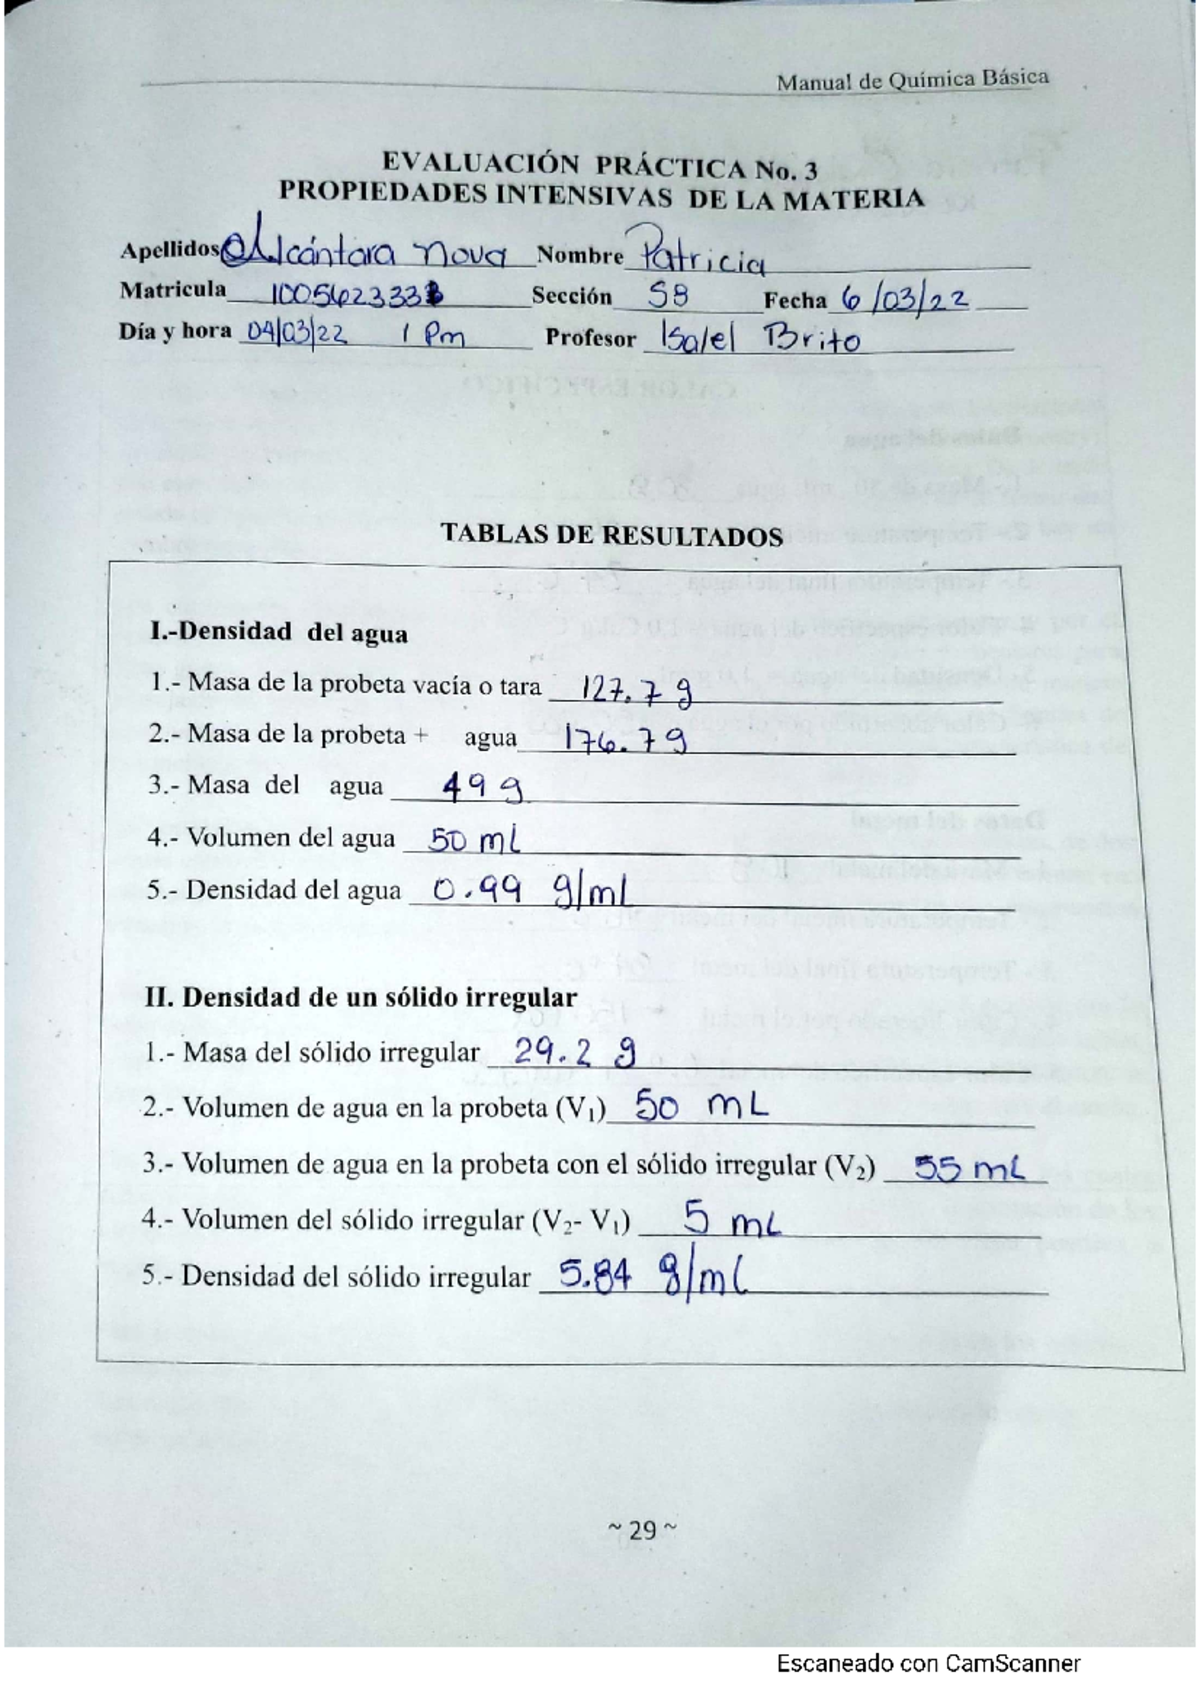 Manual de Química Básica
EVALUACIÓN PRÁCTICA No. 3
PROPIEDADES INTENSIVAS DE LA MATERIA
Apellidos Alcántara Nova Nombre Patricia
Matricula 100562333 Sección S8 Fecha 6/03/22
Día y hora 04/03/22 1 Pm Profesor Isa/el Brito
TABLAS DE RESULTADOS
I.-Densidad del agua
1.- Masa de la probeta vacía o tara 127.7 g
2.- Masa de la probeta + agua 176.7 g
3.- Masa del agua 49 g
4.- Volumen del agua 50 ml
5.- Densidad del agua 0.99 g/ml
II. Densidad de un sólido irregular
1.- Masa del sólido irregular 29.2 g
2.- Volumen de agua en la probeta (V₁) 50 mL
3.- Volumen de agua en la probeta con el sólido irregular (V₂) 55 mL
4.- Volumen del sólido irregular (V₂- V₁) 5 mL
5.- Densidad del sólido irregular 5.84 g/ml
~ 29 ~
Escaneado con CamScanner